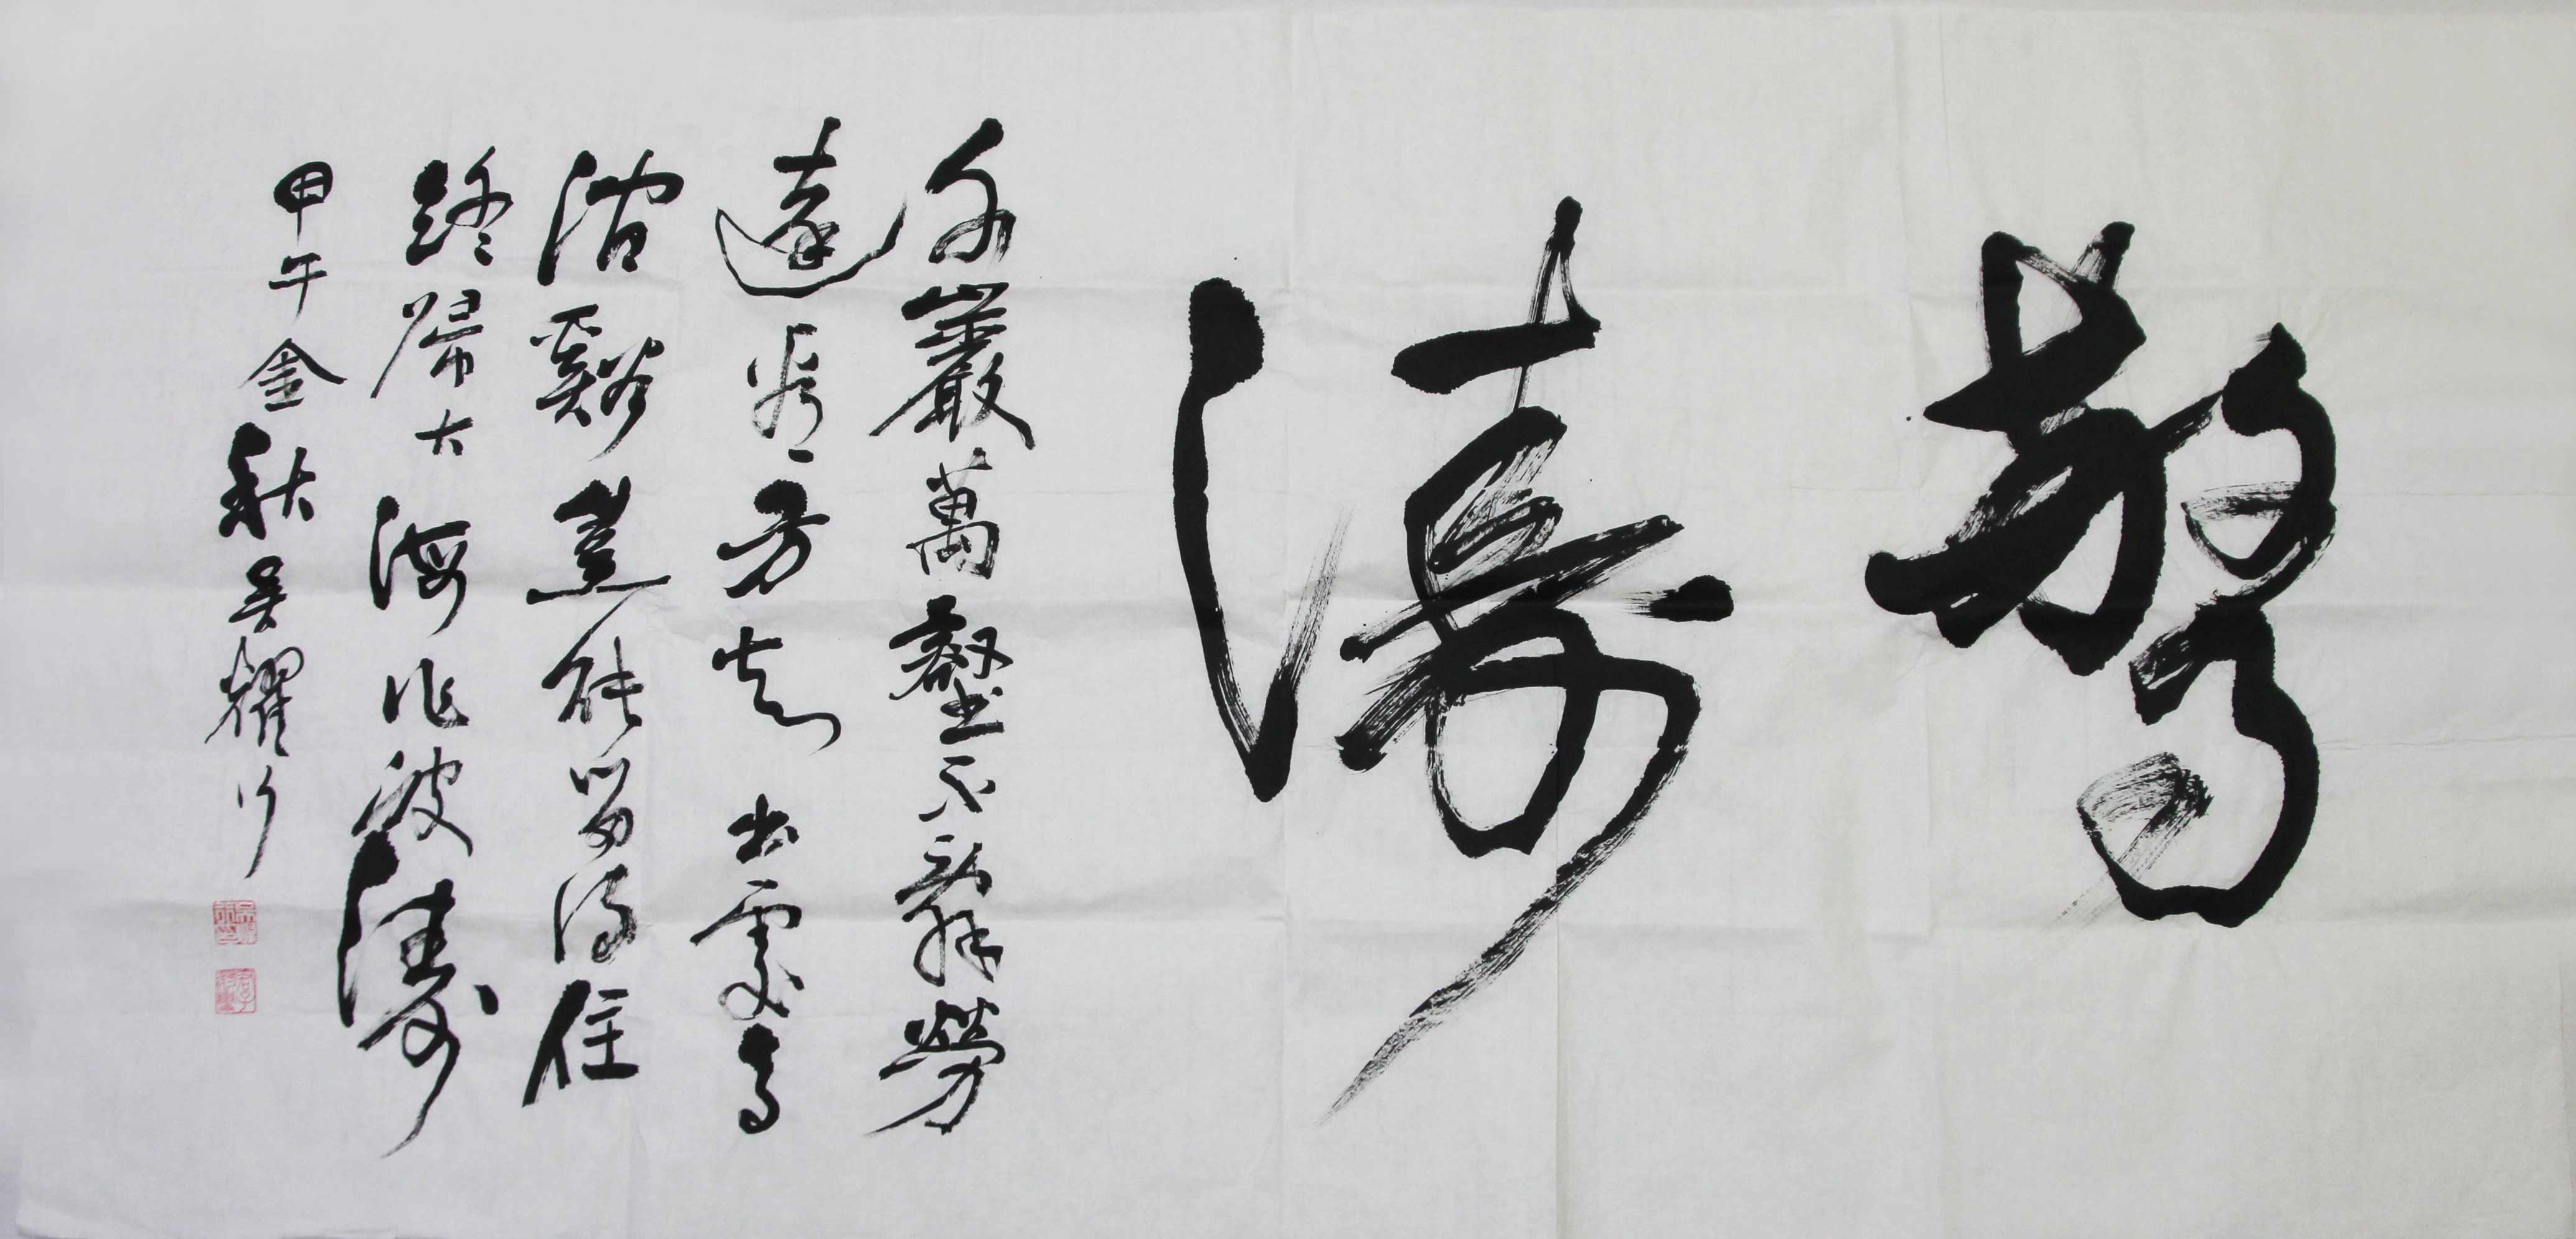 驚濤
千巖萬壑不辭勞
遠看方知出處高
澗谿豈能留得住
終歸大海作波濤
甲午金秋吳耀